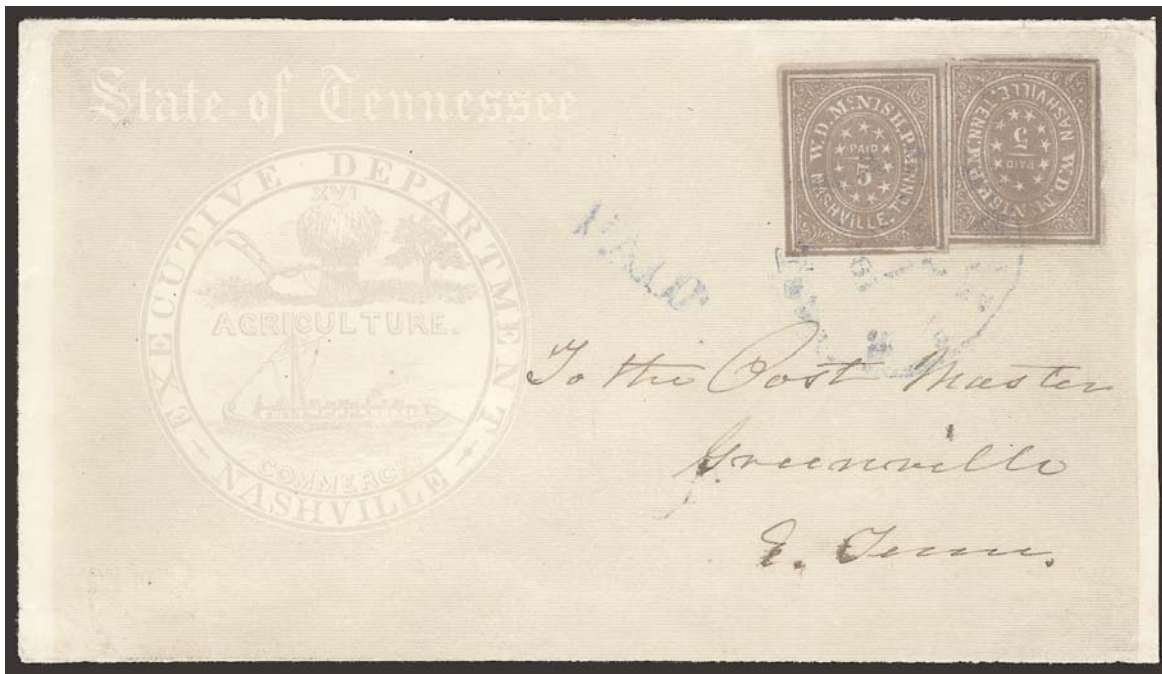 State of Tennessee
EXECUTIVE DEPARTMENT
NASHVILLE
XVI
AGRICULTURE.
COMMERCE
W.D. McNISH. P.M.
PAID
5
NASHVILLE, TENN.
W.D. McNISH. P.M.
PAID
5
NASHVILLE, TENN.
PAID
To the Post Master
Greenville
E. Tenn.